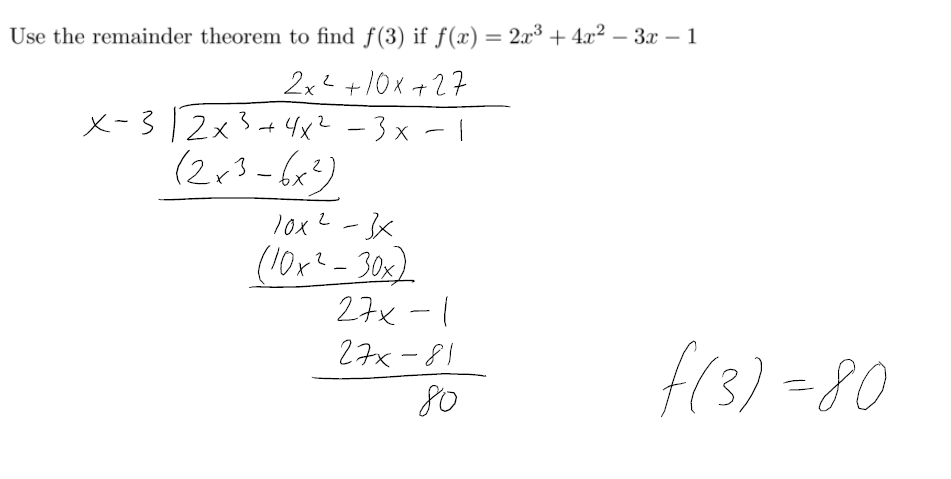 Use the remainder theorem to find f(3) if f(x) = 2x³ + 4x² − 3x − 1
2x² + 10x + 27
x − 3 | 2x³ + 4x² − 3x − 1
(2x³ − 6x²)
10x² − 3x
(10x² − 30x)
27x − 1
27x − 81
80
f(3) = 80